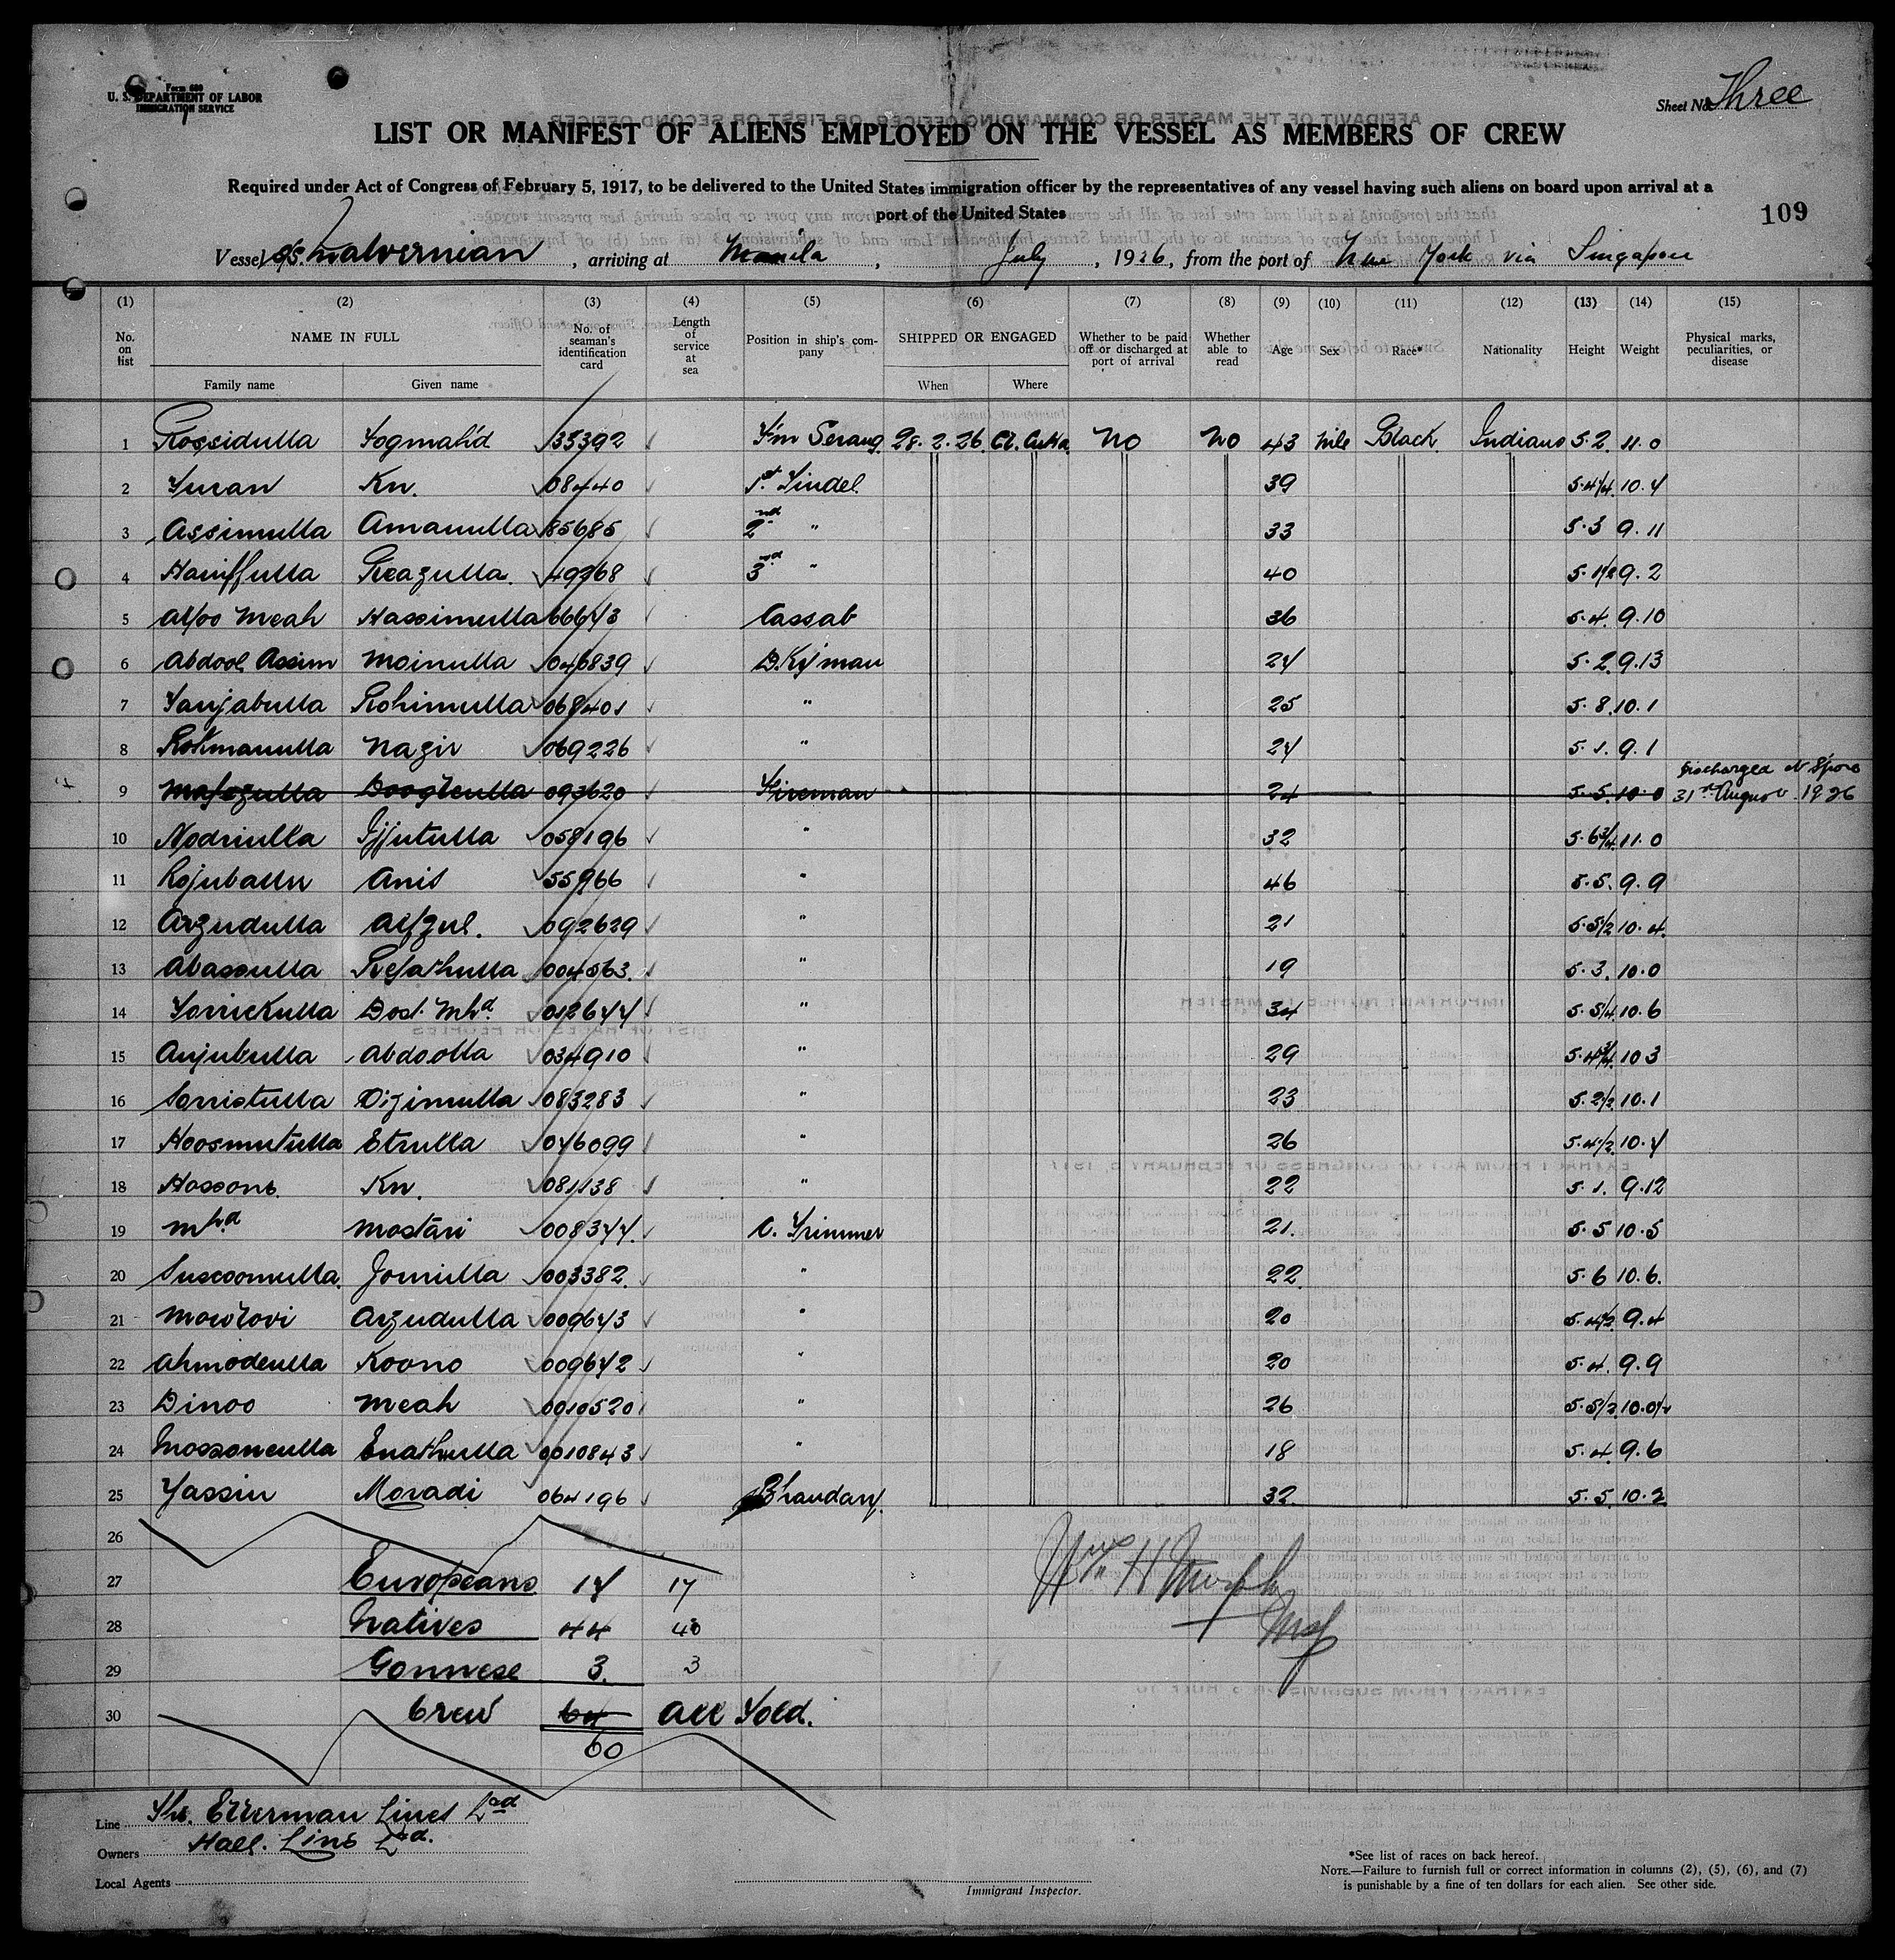 Form 680
U. S. DEPARTMENT OF LABOR
IMMIGRATION SERVICE
Sheet No. Three
LIST OR MANIFEST OF ALIENS EMPLOYED ON THE VESSEL AS MEMBERS OF CREW
Required under Act of Congress of February 5, 1917, to be delivered to the United States immigration officer by the representatives of any vessel having such aliens on board upon arrival at a
port of the United States
109
Vessel S/S. Malvernian, arriving at Manila, July, 1926, from the port of New York via Singapore
(1) (2) (3) (4) (5) (6) (7) (8) (9) (10) (11) (12) (13) (14) (15)
No. on list NAME IN FULL No. of seaman's identification card Length of service at sea Position in ship's company SHIPPED OR ENGAGED Whether to be paid off or discharged at port of arrival Whether able to read Age Sex Race* Nationality Height Weight Physical marks, peculiarities, or disease
Family name Given name When Where
1 Rossidulla 35392 F'm Serang 28.2.26 Cl.Cutta. No No 43 Mle Black Indians 5.2. 11.0
2 Kn. 08440 1st Tindel 39 5.4¼ 10.4
3 Assimulla Amanulla 85685 2nd " 33 5.3 9.11
4 Haniffulla Reazulla. 49968 3rd " 40 5.1½ 9.2
5 Meah Hassimulla 66643 Cassab 36 5.4. 9.10
6 Abdool Assim Moinulla 046839 D.Ky'man 24 5.2. 9.13
7 Tanjabulla Rohimulla 068401 " 25 5.8. 10.1
8 Rokmanulla Nazir 069226 " 24 5.1. 9.1
9 Mafozulla 093620 Fireman 24 5.5. 10.0 Discharged at S'pore
31st August. 1926
10 Nodriulla Ijjutulla 058196 " 32 5.6¾ 11.0
11 Anis 55966 " 46 5.5. 9.9
12 Arzudulla Afzul. 092629 " 21 5.5½ 10.4.
13 Abassulla Refathulla 004563. " 19 5.3. 10.0
14 Torrickulla Dost. Mhd. 012644 " 34 5.5¼ 10.6
15 Anjubulla Abdoolla 034910 " 29 5.4¾ 10.3
16 Sorristulla Dijimulla 083283 " 23 5.2½ 10.1
17 Hoosmutulla Etrulla 046099 " 26 5.4½ 10.4
18 Hossone. Kn. 081138 " 22 5.1. 9.12
19 Mhd. Mostari 008344. C. Trimmer 21. 5.5 10.5
20 Jomulla 003382. " 22 5.6 10.6.
21 Arzudulla 009643 " 20 5.4½ 9.4
22 Ahmodeulla Koono 009642 " 20 5.4. 9.9
23 Dinoo Meah 0010520 " 26 5.5½
24 Mossoneulla Enathulla 0010843 " 18 5.4. 9.6
25 Yassin Moradi 064196 Bhandary. 32. 5.5. 10.2
26
27 Europeans 14 17
28 Natives 44 40
29 Goanese 3. 3
30 Crew 64 All Told.
60
Wm H Murphy
Line The Ellerman Lines Ltd
Owners Hall. Line Ltd.
Local Agents
Immigrant Inspector.
*See list of races on back hereof.
NOTE.—Failure to furnish full or correct information in columns (2), (5), (6), and (7)
is punishable by a fine of ten dollars for each alien. See other side.